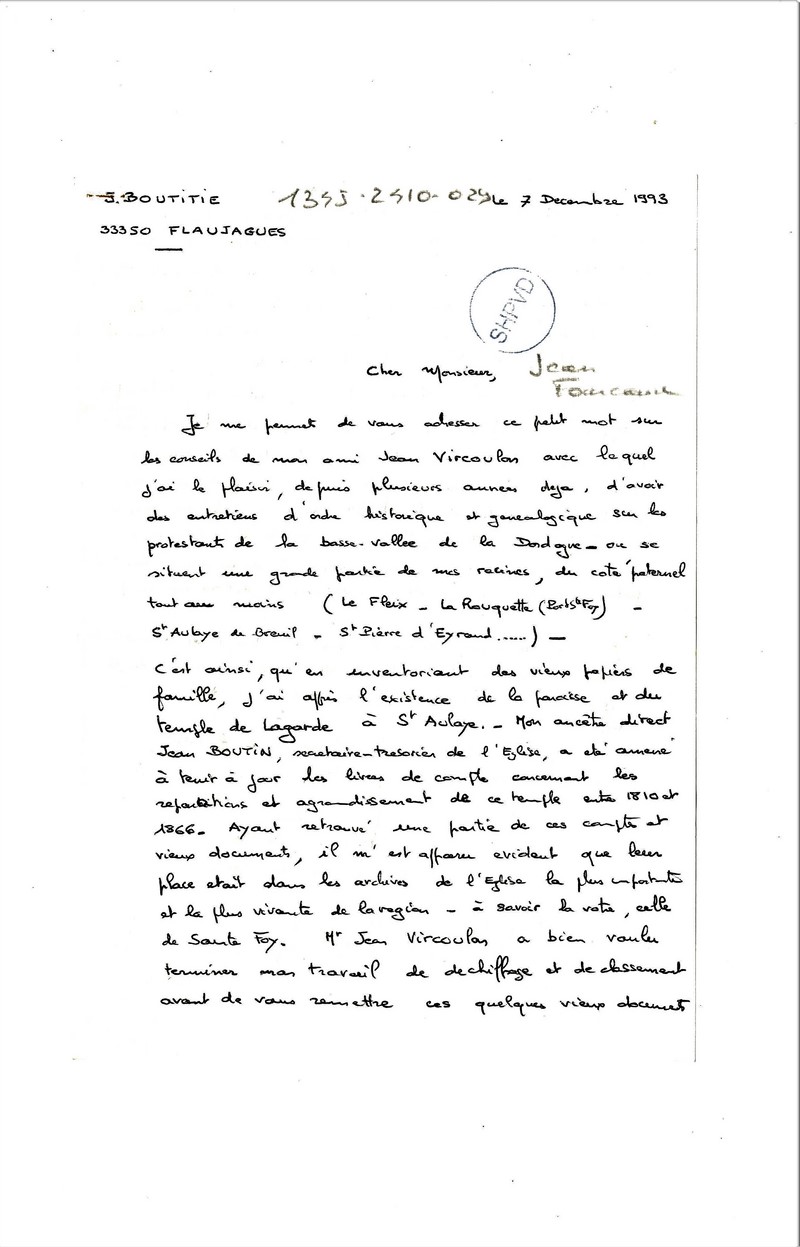 J. BOUTITIE 1353-2410-029 le 7 Decembre 1993
33350 FLAUJAGUES
SHPVD
Cher Monsieur, Jean
Je me permet de vous adresser ce petit mot sur
les conseils de mon ami Jean Vircoulon avec lequel
j'ai le plaisir, depuis plusieurs annees deja, d'avoir
des entretiens d'ordre historique et genealogique sur les
protestants de la basse-vallee de la Dordogne - ou se
situent une grande partie de mes racines, du coté paternel
tout au moins (Le Fleix - La Rouquette (Port Ste Foy) -
St Aulaye de Breuil - St Pierre d'Eyraud.....) -
C'est ainsi, qu'en inventoriant des vieux papiers de
famille, j'ai appris l'existence de la paroisse et du
temple de Lagarde à St Aulaye. - Mon ancêtre direct
Jean BOUTIN, secretaire-tresorier de l'Eglise, a eté amené
à tenir à jour les livres de compte concernant les
repartitions et agrandissement de ce temple entre 1810 et
1866. Ayant retrouvé une partie de ces compte et
vieux documents, il m'est apparu evident que leur
place etait dans les archives de l'Eglise la plus importante
et la plus vivante de la region - à savoir la votre, celle
de Sainte Foy. Mr Jean Vircoulon a bien voulu
terminer mon travail de dechiffage et de classement
avant de vous remettre ces quelques vieux documents